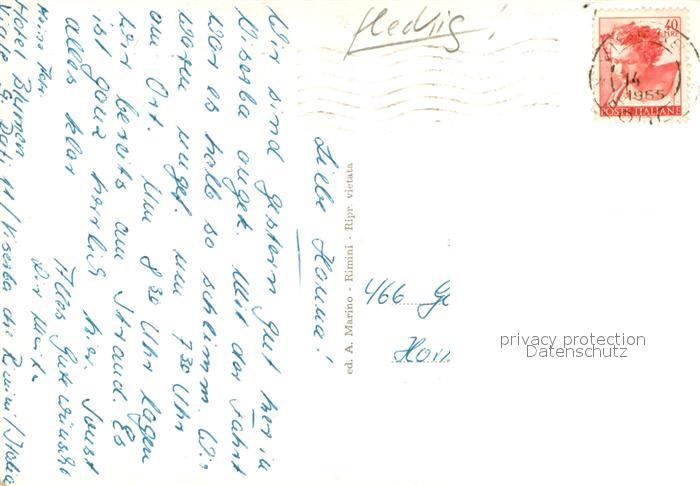 Liebe Hanna!
Wir sind gestern gut hier in
Viserba anget. Mit der Fahrt
war es halb so schlimm. Wir
waren unget. um 7 30 Uhr
am Ort. Um 8 30 Uhr lagen
wir bereits am Strand. Es
ist ganz herrlich hier. Sonst
alles klar
Alles Gute wünscht
Dir
Hotel Blumen
Viale G. Dati 11/Viserba di Rimini/Italia
ed. A. Marino - Rimini - Ripr. vietata
40
LIRE
14
1965
POSTE ITALIANE
466 Ge
Hor
privacy protection
Datenschutz